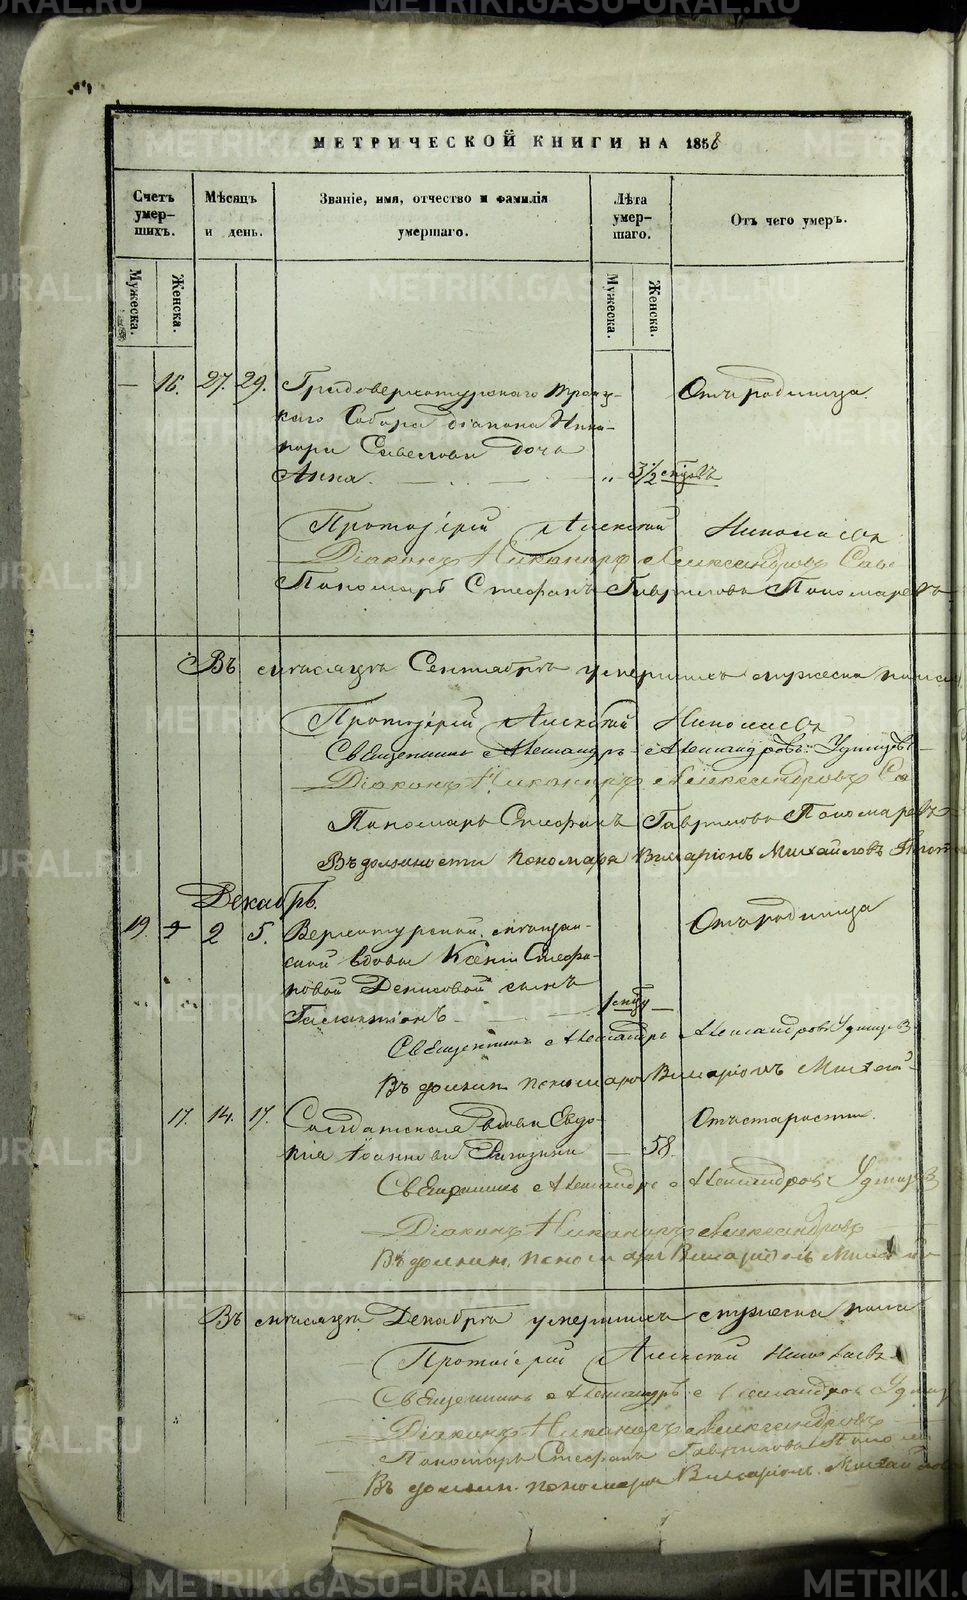 МЕТРИЧЕСКОЙ КНИГИ НА 1858
Счетъ умер-шихъ.
Мѣсяцъ и день.
Званіе, имя, отчество и фамилія умершаго.
Лѣта умер-шаго.
Отъ чего умеръ.
Мужеска.
Женска.
Мужеска.
Женска.
— 16. 27. 29. Градоверхотурскаго Троиц- Отъ родимца
каго Собора діакона Ника-
нора Савесова дочь
Анна. — „ 3½ мѣс.
Протоіерей Алексій Николаевъ
Діаконъ Никаноръ Александровъ
Пономарь Стефанъ Гавриловъ Пономаревъ
Въ мѣсяцѣ Сентябрѣ умершихъ мужеска пола
Протоіерей Алексій Николаевъ
Священникъ Александръ Александровъ Удинцевъ
Діаконъ Никаноръ Александровъ
Пономарь Стефанъ Гавриловъ Пономаревъ
Въ должности пономаря Иларіонъ Михайловъ
Декабрь.
19. 2 5. Верхотурской мѣщан- Отъ родимца
ской вдовы Ксеніи Стефа-
новой Денисовой сынъ
Галактіонъ — 1 мѣс.
Священникъ Александръ Александровъ Удинцевъ
Въ должн. пономаря Иларіонъ Михай-
17. 14. 17. Солдатская вдова Евдо- Отъ старости.
кія Іоаннова — 58.
Священникъ Александръ Александровъ Удинцевъ
Діаконъ Никаноръ Александровъ
Въ должн. пономаря Иларіонъ Михай
Въ мѣсяцѣ Декабрѣ умершихъ мужеска пола
Протоіерей Алексій Николаевъ
Священникъ Александръ Александровъ Удинц
Діаконъ Никаноръ Александровъ
Пономарь Стефанъ Гавриловъ Поном
Въ должн. пономаря Иларіонъ Михайлов
METRIKI.GASO-URAL.RU